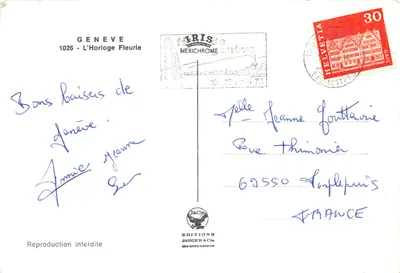 GENEVE
1026 - L'Horloge Fleurie
IRIS
MEXICHROME
HELVETIA
30
Bons baisers de
Genève.
Annie
Jeanne
Melle Jeanne
Rue Thimonier
69550 Amplepuis
FRANCE
EDITIONS
JAEGER & Cie
Reproduction interdite